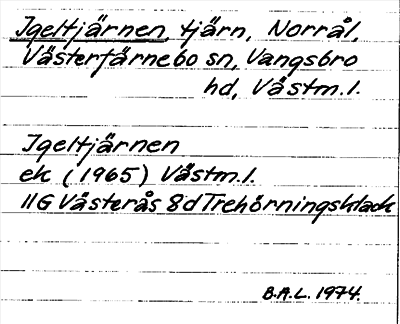 Igeltjärnen, tjärn, Norrål,
Västerfärnebo sn, Vangsbro
hd, Västm.l.
Igeltjärnen
ek (1965) Västm.l.
11G Västerås 8d Trehörningsklack
B.A.L. 1974.